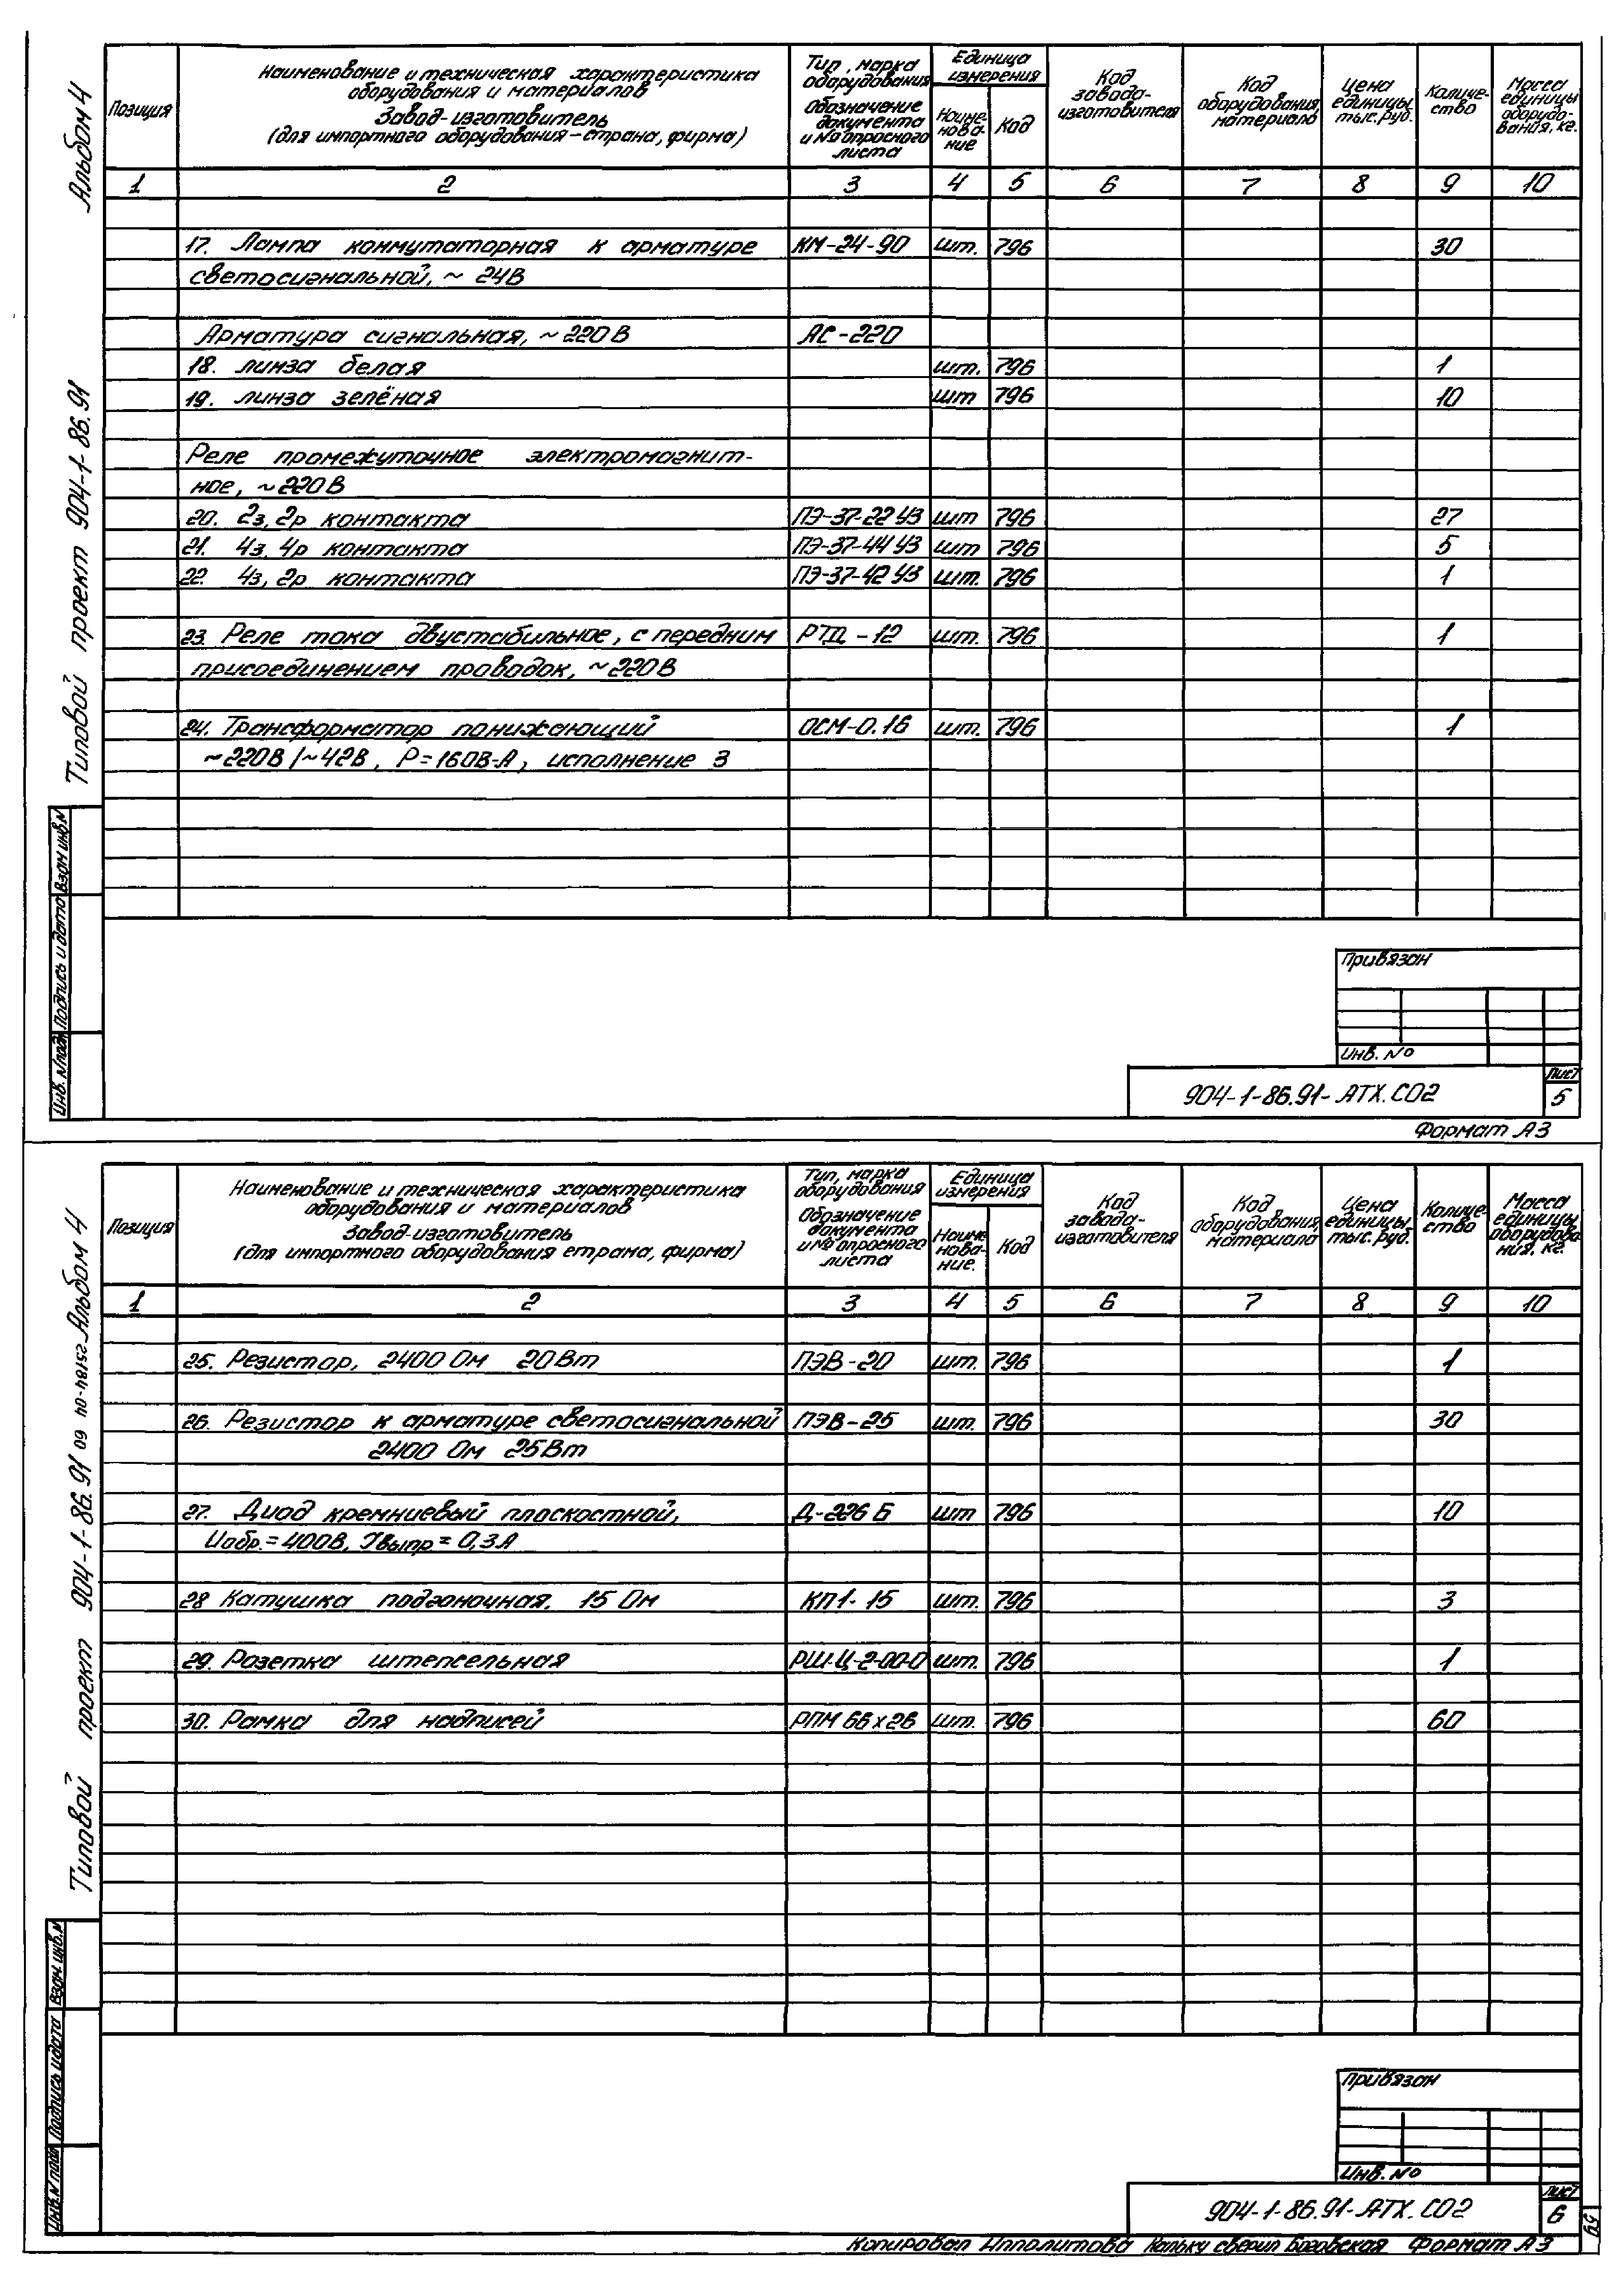 Альбом 4
Типовой проект 904-1-86.91
Позиция
Наименование и техническая характеристика
оборудования и материалов
Завод-изготовитель
(для импортного оборудования – страна, фирма)
Тип, марка
оборудования
Обозначение
документа
и № опросного
листа
Единица
измерения
Наиме-
нова-
ние
Код
Код
завода-
изготовителя
Код
оборудования
материала
Цена
единицы
тыс. руб.
Количе-
ство
Масса
единицы
оборудо-
вания, кг.
1 2 3 4 5 6 7 8 9 10
17. Лампа коммутаторная к арматуре КМ-24-90 шт. 796 30
светосигнальной, ~ 24В
Арматура сигнальная, ~220В АС-220
18. линза белая шт. 796 1
19. линза зелёная шт 796 10
Реле промежуточное электромагнит-
ное, ~220В
20. 2з, 2р контакта ПЭ-37-22 У3 шт 796 27
21. 4з, 4р контакта ПЭ-37-44 У3 шт 796 5
22. 4з, 2р контакта ПЭ-37-42 У3 шт. 796 1
23. Реле тока двустабильное, с передним РТД-12 шт. 796 1
присоединением проводок, ~220В
24. Трансформатор понижающий ОСМ-0.16 шт. 796 1
~220В/~42В, Р=160В-А, исполнение 3
Взам инв.N
Подпись и дата
Инв. N подл
Привязан
Инв. №
904-1-86.91-АТХ.СО2
лист
5
Формат А3
Альбом 4
25184-04
60
Типовой проект 904-1-86.91
Позиция
Наименование и техническая характеристика
оборудования и материалов
Завод-изготовитель
(для импортного оборудования страна, фирма)
Тип, марка
оборудования
Обозначение
документа
и № опросного
листа
Единица
измерения
Наиме-
нова-
ние.
Код
Код
завода-
изготовителя
Код
оборудования
материала
Цена
единицы
тыс. руб.
Количе-
ство
Масса
единицы
оборудова
ния, кг.
1 2 3 4 5 6 7 8 9 10
25. Резистор, 2400 Ом 20Вт ПЭВ-20 шт. 796 1
26. Резистор к арматуре светосигнальной ПЭВ-25 шт. 796 30
2400 Ом 25Вт
27. Диод кремниевый плоскостной, Д-226 Б шт 796 10
Uобр.=400В, Iвыпр=0,3А
28 Катушка подгоночная. 15 Ом КП1-15 шт. 796 3
29. Розетка штепсельная РШ-Ц-2-00-0 шт. 796 1
30. Рамка для надписей РПМ 66х26 шт. 796 60
Взам. инв.N
Подпись и дата
Инв.N подл
Привязан
Инв. №
904-1-86.91-АТХ.СО2
лист
6
59
Копировал Ипполитова Кальку сверил Боровская Формат А3